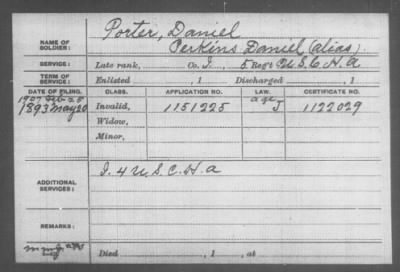 NAME OF SOLDIER: Porter, Daniel
Perkins Daniel (alias)
SERVICE: Late rank, Co. I, 5 Reg't U.S.C.H.A
TERM OF SERVICE: Enlisted , 1 Discharged , 1
DATE OF FILING. CLASS. APPLICATION NO. LAW. CERTIFICATE NO.
1907 Feb 25 age
1893 May 20 Invalid, 1151225 J 1122029
Widow,
Minor,
ADDITIONAL SERVICES: I. 4 U.S.C.H.a
REMARKS:
Died , 1 , at